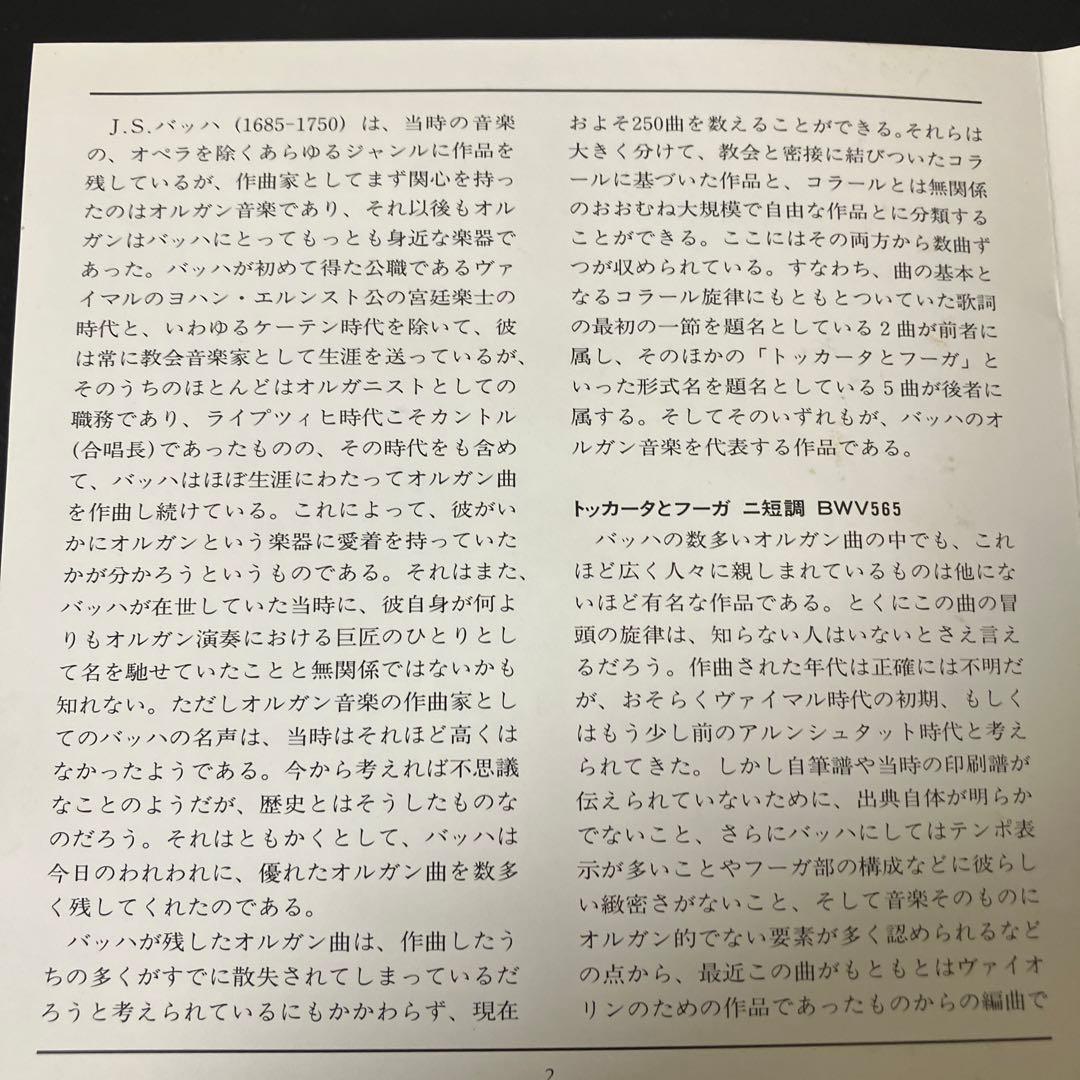 J.S.バッハ (1685-1750) は、当時の音楽
の、オペラを除くあらゆるジャンルに作品を
残しているが、作曲家としてまず関心を持っ
たのはオルガン音楽であり、それ以後もオル
ガンはバッハにとってもっとも身近な楽器で
あった。バッハが初めて得た公職であるヴァ
イマルのヨハン・エルンスト公の宮廷楽士の
時代と、いわゆるケーテン時代を除いて、彼
は常に教会音楽家として生涯を送っているが、
そのうちのほとんどはオルガニストとしての
職務であり、ライプツィヒ時代こそカントル
(合唱長)であったものの、その時代をも含め
て、バッハはほぼ生涯にわたってオルガン曲
を作曲し続けている。これによって、彼がい
かにオルガンという楽器に愛着を持っていた
かが分かろうというものである。それはまた、
バッハが在世していた当時に、彼自身が何よ
りもオルガン演奏における巨匠のひとりとし
て名を馳せていたことと無関係ではないかも
知れない。ただしオルガン音楽の作曲家とし
てのバッハの名声は、当時はそれほど高くは
なかったようである。今から考えれば不思議
なことのようだが、歴史とはそうしたものな
のだろう。それはともかくとして、バッハは
今日のわれわれに、優れたオルガン曲を数多
く残してくれたのである。
バッハが残したオルガン曲は、作曲したう
ちの多くがすでに散失されてしまっているだ
ろうと考えられているにもかかわらず、現在
およそ250曲を数えることができる。それらは
大きく分けて、教会と密接に結びついたコラ
ールに基づいた作品と、コラールとは無関係
のおおむね大規模で自由な作品とに分類する
ことができる。ここにはその両方から数曲ず
つが収められている。すなわち、曲の基本と
なるコラール旋律にもともとついていた歌詞
の最初の一節を題名としている2曲が前者に
属し、そのほかの「トッカータとフーガ」と
いった形式名を題名としている5曲が後者に
属する。そしてそのいずれもが、バッハのオ
ルガン音楽を代表する作品である。
トッカータとフーガ ニ短調 BWV565
バッハの数多いオルガン曲の中でも、これ
ほど広く人々に親しまれているものは他にな
いほど有名な作品である。とくにこの曲の冒
頭の旋律は、知らない人はいないとさえ言え
るだろう。作曲された年代は正確には不明だ
が、おそらくヴァイマル時代の初期、もしく
はもう少し前のアルンシュタット時代と考え
られてきた。しかし自筆譜や当時の印刷譜が
伝えられていないために、出典自体が明らか
でないこと、さらにバッハにしてはテンポ表
示が多いことやフーガ部の構成などに彼らし
い緻密さがないこと、そして音楽そのものに
オルガン的でない要素が多く認められるなど
の点から、最近この曲がもともとはヴァイオ
リンのための作品であったものからの編曲で
2